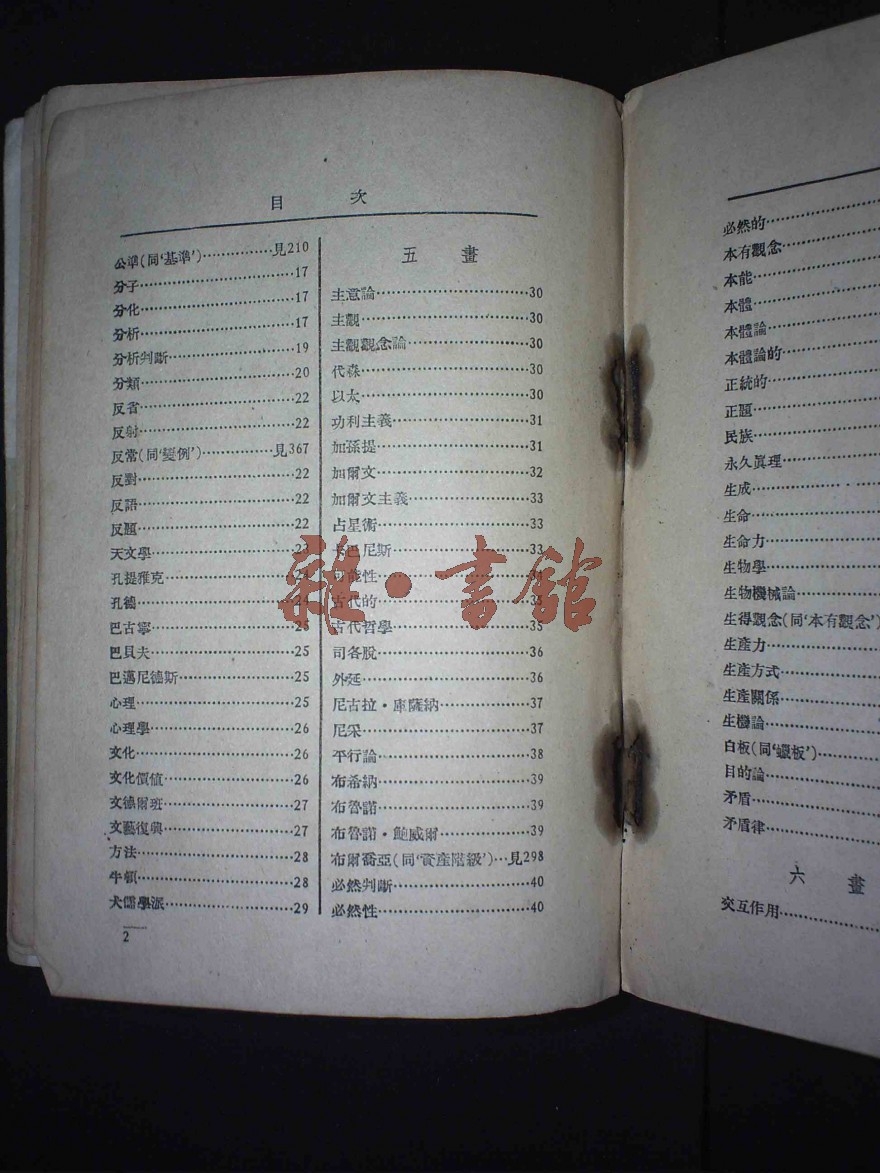 目 次
公準(同‘基準’)……………見210
分子……………17
分化……………17
分析……………17
分析判斷……………19
分類……………20
反省……………22
反射……………22
反常(同‘變例’)……………見367
反對……………22
反語……………22
反題……………22
天文學……………23
孔提雅克……………24
孔德……………24
巴古寧……………25
巴貝夫……………25
巴邁尼德斯……………25
心理……………25
心理學……………26
文化……………26
文化價値……………26
文德爾班……………27
文藝復興……………27
方法……………28
牛頓……………28
犬儒學派……………29
2
五 畫
主意論……………30
主觀……………30
主觀觀念論……………30
代森……………30
以太……………30
功利主義……………31
加孫提……………31
加爾文……………32
加爾文主義……………33
占星術……………33
卡巴尼斯……………33
可能性……………34
古代的……………35
古代哲學……………35
司各脫……………36
外延……………36
尼古拉・庫薩納……………37
尼采……………37
平行論……………38
布希納……………39
布魯諾……………39
布魯諾・鮑威爾……………39
布爾喬亞(同‘資產階級’)…見298
必然判斷……………40
必然性……………40
必然的……………
本有觀念……………
本能……………
本體……………
本體論……………
本體論的……………
正統的……………
正題……………
民族……………
永久眞理……………
生成……………
生命……………
生命力……………
生物學……………
生物機械論……………
生得觀念(同‘本有觀念’)
生產力……………
生產方式……………
生產關係……………
生機論……………
白板(同‘蠟板’)……………
目的論……………
矛盾……………
矛盾律……………
六 畫
交互作用……………
雜・書館